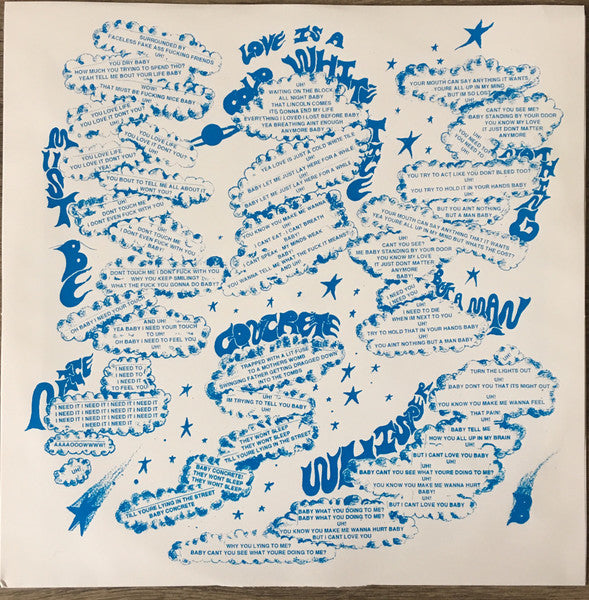 MUST BE NICE
SURROUNDED BY
FACELESS FAKE ASS FUCKING FRIENDS
UH!
YOU DRY BABY
HOW MUCH YOU TRYING TO SPEND THO?
YEAH TELL ME BOUT YOUR LIFE BABY
WOW!
THAT MUST BE FUCKING NICE BABY
UH!
YOU LOVE LIFE
YOU LOVE IT DONT YOU?
YOU LOVE LIFE
YOU LOVE IT DONT YOU?
YOU LOVE LIFE
YOU LOVE IT DONT YOU?
YEA!
YOU BOUT TO TELL ME ALL ABOUT IT
WONT YOU?
UH!
DONT TOUCH ME
I DONT EVEN FUCK WITH YOU
UH!
DONT TOUCH ME
I DONT EVEN FUCK WITH YOU
BABY
UH!
DONT TOUCH ME I DONT FUCK WITH YOU
WHY YOU KEEP SMILING?
WHAT THE FUCK YOU GONNA DO BABY?
UH!
OH BABY I NEED YOUR TOUCH
AND UH!
YEA BABY I NEED YOUR TOUCH
TO UH!
OH BABY I NEED TO FEEL YOU
UH!
I NEED TO
I NEED TO
I NEED IT
TO FEEL YOU
I NEED IT I NEED IT I NEED IT I NEED IT
I NEED IT I NEED IT I NEED IT I NEED IT
I NEED IT I NEED IT I NEED IT I NEED IT
I NEED IT I NEED IT I NEED IT I NEED IT
AAAAOOOWWWW!
UH!
LOVE IS A OLD WHITE TILE
UH!
WAITING ON THE BLOCK
ALL NIGHT BABY
THAT LINCOLN COMES
ITS GONNA END MY LIFE
EVERYTHING I LOVED I LOST BEFORE BABY
YEA BREATHING AINT ENOUGH
ANYMORE BABY
YEA LOVE IS JUST A COLD WHITE TILE
UH!
BABY LET ME JUST LAY HERE FOR A WHILE
UH!
BABY LET ME JUST LAY HERE FOR A WHILE
UH!
YOU KNOW YOU MAKE ME WANNA
UH!
I CANT EAT, I CANT BREATH
UH!
I CANT SPEAK, MY MINDS WEAK
BABY!
YOU WANNA TELL ME WHAT THE FUCK IT MEANS?
AND UH!
CONCRETE
TRAPPED WITH A LIT FUSE
TO A MOTHERS WOMB
SWINGING FATHER GETTING DRAGGED DOWN
INTO THE TOMBS
UH!
IM TRYING TO TELL YOU BABY
UH!
THEY WONT SLEEP
THEY WONT SLEEP
TILL YOURE LYING IN THE STREET
BABY CONCRETE!
THEY WONT SLEEP
THEY WONT SLEEP
TILL YOURE LYING IN THE STREET
BABY CONCRETE
NOTHING BUT A MAN
YOUR MOUTH CAN SAY ANYTHING IT WANTS
YOURE ALL UP IN MY MIND
BUT IM SO LOST
UH!
CANT YOU SEE ME?
BABY STANDING BY YOUR DOOR
YOU KNOW MY LOVE
IT JUST DONT MATTER
ANYMORE
YOU NEED TO
YOU NEED TO
UH!
YOU TRY TO ACT LIKE YOU DONT BLEED TOO?
UH!
YOU TRY TO HOLD IT IN YOUR HANDS BABY
UH!
BUT YOU AINT NOTHING
BUT A MAN BABY
YOUR MOUTH CAN SAY ANYTHING THAT IT WANTS
YEA YOURE ALL UP IN MY MIND BUT WHATS THE COST?
UH!
CANT YOU SEE?
ME BABY STANDING BY YOUR DOOR
YOU KNOW MY LOVE
IT JUST DONT MATTER
ANYMORE
BABY!
I NEED YOU
I NEED YOU
UH!
I NEED TO DIE
WHEN IM NEXT TO YOU
UH!
TRY TO HOLD THAT IN YOUR HANDS BABY
UH!
YOU AINT NOTHING BUT A MAN BABY
WHISPER
TURN THE LIGHTS OUT
UH!
BABY DONT YOU THAT ITS NIGHT OUT
UH!
YOU KNOW YOU MAKE ME WANNA FEEL
THAT PAIN!
UH!
BABY TELL ME
HOW YOU ALL UP IN MY BRAIN
UH!
BUT I CANT LOVE YOU BABY
UH!
BABY CANT YOU SEE WHAT YOURE DOING TO ME?
UH!
YOU KNOW YOU MAKE ME WANNA HURT
BABY!
UH!
BUT I CANT LOVE YOU BABY
BABY WHAT YOU DOING TO ME?
BABY WHAT YOU DOING TO ME?
UH!
YOU KNOW YOU MAKE ME WANNA HURT BABY
UH!
BUT I CANT LOVE YOU
WHY YOU LYING TO ME?
BABY CANT YOU SEE WHAT YOURE DOING TO ME?
B